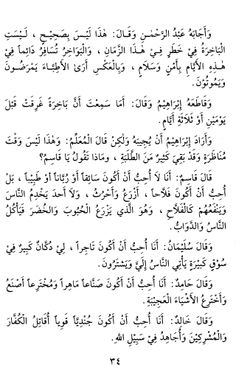 وَأَجَابَهُ عَبْدُ الرَّحْمٰنِ وَقَالَ: هٰذَا لَيْسَ بِصَحِيْحٍ، لَيْسَتِ
الْبَاخِرَةُ فِيْ خَطَرٍ فِيْ هٰذَا الزَّمَانِ، وَالْبَوَاخِرُ تُسَافِرُ دَائِماً فِيْ
هٰذِهِ الْأَيَّامِ بِأَمْنٍ وَسَلَامٍ، وَبِالْعَكْسِ أَرَىٰ الْأَطِبَّاءَ يَمْرَضُوْنَ
وَيَمُوْتُوْنَ.
وَقَاطَعَهُ إِبْرَاهِيْمُ وَقَالَ: أَمَا سَمِعْتَ أَنَّ بَاخِرَةً غَرِقَتْ قَبْلَ
يَوْمَيْنِ أَوْ ثَلَاثَةِ أَيَّامٍ.
وَأَرَادَ إِبْرَاهِيْمُ أَنْ يُجِيْبَهُ وَلٰكِنْ قَالَ الْمُعَلِّمُ: وَهٰذَا لَيْسَ وَقْتَ
مُنَاظَرَةٍ وَقَدْ بَقِيَ كَثِيْرٌ مِنَ الطَّلَبَةِ، وَمَاذَا تَقُوْلُ يَا قَاسِمُ؟
قَالَ قَاسِمٌ: أَنَا لَا أُحِبُّ أَنْ أَكُوْنَ سَائِقاً أَوْ رُبَّاناً أَوْ طَبِيْباً، بَلْ
أُحِبُّ أَنْ أَكُوْنَ فَلَّاحاً، أَزْرَعُ وَأَحْرُثُ، وَلَا أَحَدَ يَخْدِمُ النَّاسَ
وَيَنْفَعُهُمْ كَالْفَلَّاحِ، وَهُوَ الَّذِي يَزْرَعُ الْحُبُوْبَ وَالْخُضَرَ فَيَأْكُلُ
النَّاسُ وَالدَّوَابُّ.
وَقَالَ سُلَيْمَانُ: أَنَا أُحِبُّ أَنْ أَكُوْنَ تَاجِراً، لِيْ دُكَّانٌ كَبِيْرٌ فِيْ
سُوْقٍ كَبِيْرَةٍ يَأْتِي النَّاسُ إِلَيَّ وَيَشْتَرُوْنَ.
وَقَالَ حَامِدٌ: أَنَا أُحِبُّ أَنْ أَكُوْنَ صَنَّاعاً مَاهِراً وَمُخْتَرِعاً أَصْنَعُ
وَأَخْتَرِعُ الْأَشْيَاءَ الْعَجِيْبَةَ.
وَقَالَ خَالِدٌ: أَنَا أُحِبُّ أَنْ أَكُوْنَ جُنْدِيّاً قَوِياًّ أُقَاتِلُ الْكُفَّارَ
وَالْمُشْرِكِيْنَ وَأُجَاهِدُ فِيْ سَبِيْلِ اللهِ.
٣٤